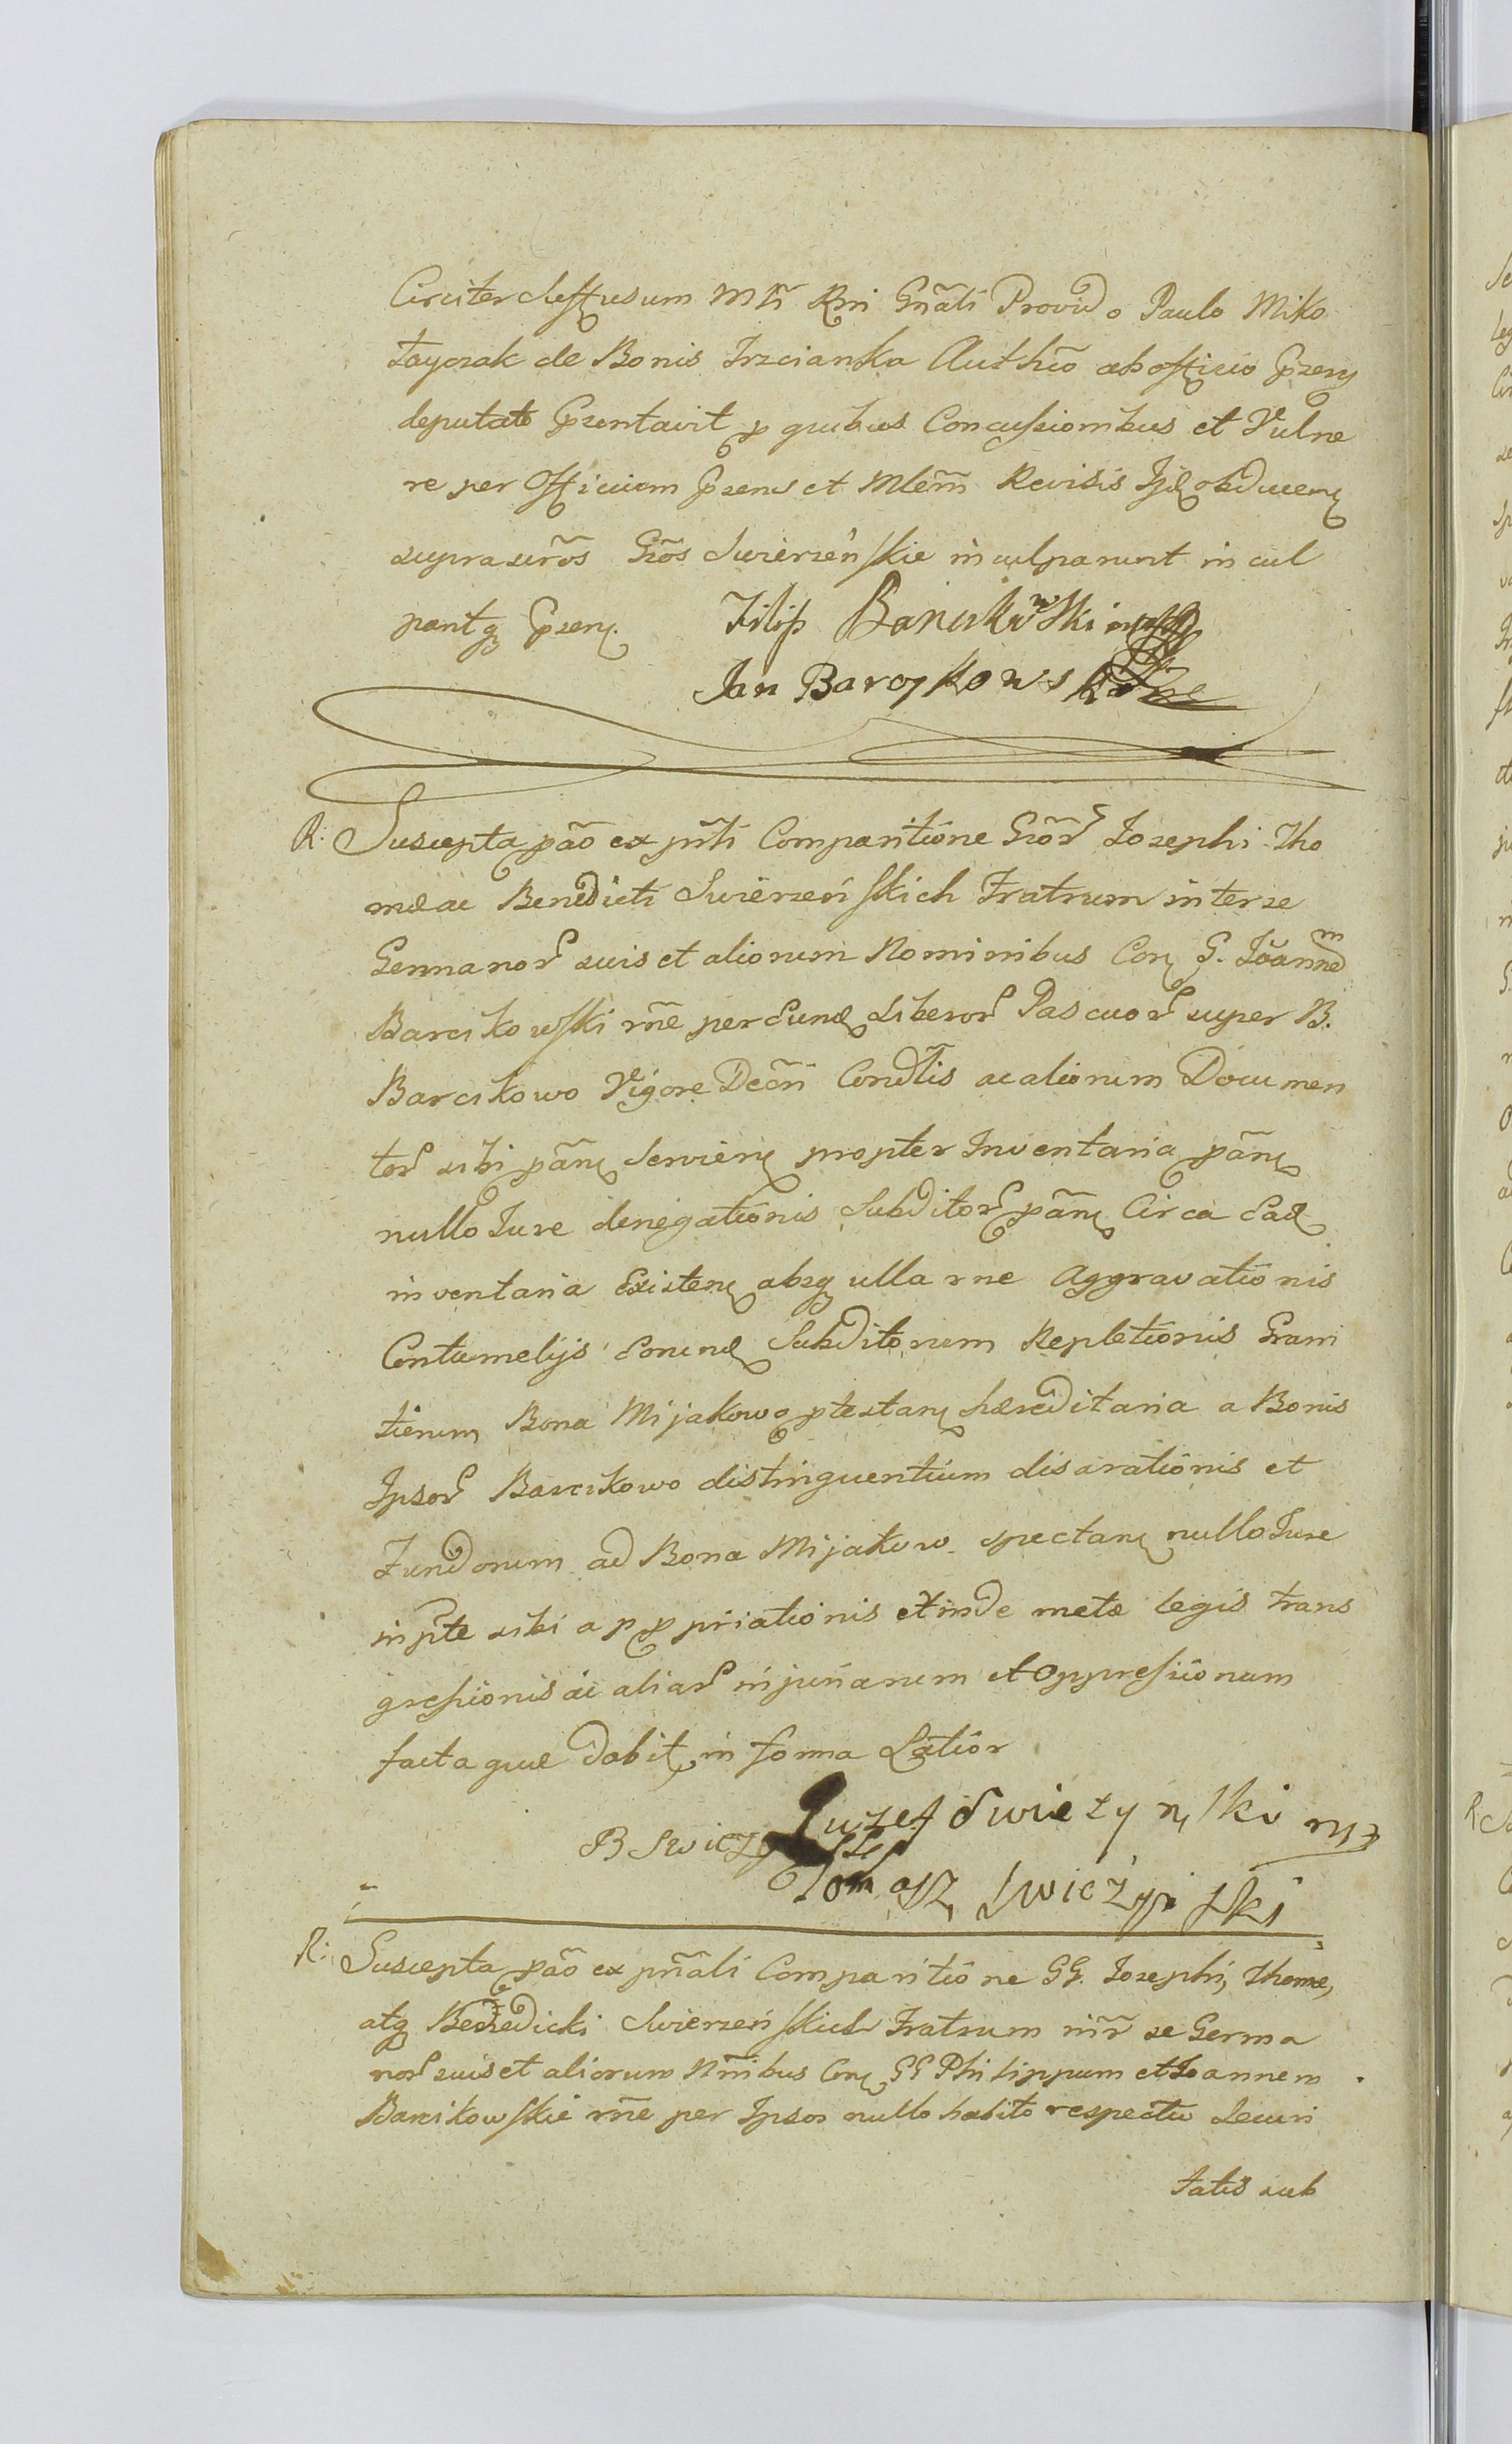 Circiter deffusum Mtĩ Rñi Gñali Provido Paulo Miko
łayczak de Bonis Trzcianka Authẽo ab officio Przenȝ
deputato Przentavit p quibus Concussionibus et Vulne
re per Officium Przens et Mlem̃ Revisis Ijdȩ obducenȝ
suprascrõs Gsõs Swierzeńskie inculparunt incul
pantqȝ Przenȝ. Filip Barcikowski mpp
Jan Barczkowski
R: Suscepta pão ex pñti Comparitione Gsõr Josephi Tho
mæ ac Benedicti Swierzeńskich Fratrum inter se
Germanor suis et aliorum Nominibus Conȝ G. Ioannem
Barcikowski rñe per Eundȩ Liberor Pascuor super B.
Barcikowo Vigore Decr̃i Condĩtis ac aliorum Documen
tor sibi pãnȝ Servienȝ propter Inventaria pãnȝ
nullo Iure denegationis Subditor pãnȝ Circa Eadȩ
inventaria Existenȝ absqȝ ulla rne Aggravationis
Contumelijs Eorundȩ Subditorum Repletionis Grani
tierum Bona Mijakowo ptestanȝ hæreditaria a Bonis
Ipsor Barcikowo distinguentium disarationis et
Fundorum ad Bona Mijakow. spectanȝ nullo Iure
in pte sibi appropriationis et inde metæ legis trans
gressionis ac aliar injuriarum et Oppressionum
facta quæ dabitȝ in forma Latior
Juzef Swiezynski mp
B Swiezynski
Tomasz Swieżyński
R: Suscepta pão ex pñali Comparitione GG. Josephi, Thomæ,
atqȝ Benedicki Swierzeńskich Fratrum inr̃ se Germa
nor suis et aliorum Nñibus Conȝ GG Philippum et Joannem
Barcikowskie rñe per Ipsos nullo habito respectu Securi
tatis sub